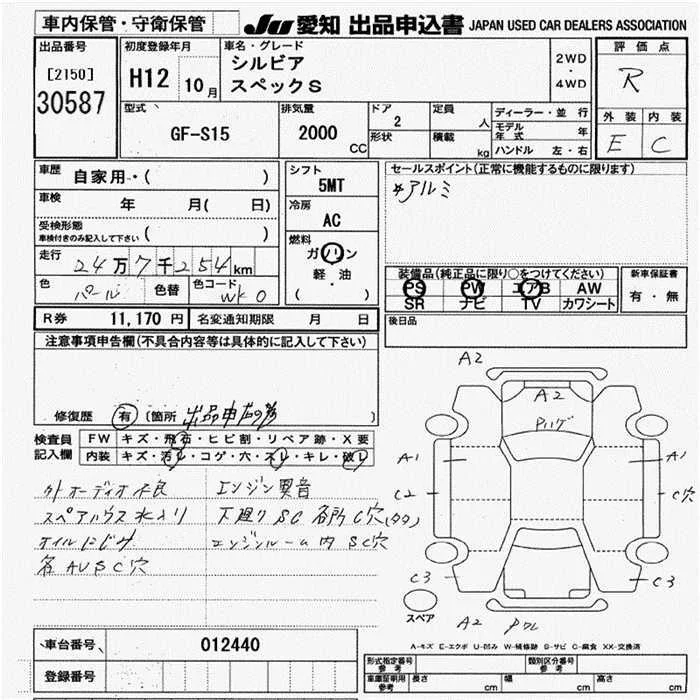 車内保管・守衛保管
JU 愛知 出品申込書 JAPAN USED CAR DEALERS ASSOCIATION
出品番号 初度登録年月 車名・グレード 評価点
[2150] H12 10月 シルビア 2WD
30587 スペックS ・ 4WD R
型式 排気量 ドア 定員 人 ディーラー・並行 外装 内装
GF-S15 2000 CC 2 モデル年式 年 E C
形状 積載 kg ハンドル 左・右
車歴 自家用・( ) シフト セールスポイント(正常に機能するものに限ります)
5MT *アルミ
車検 年 月( 日) 冷房
AC
受検形態
車検付きのみ記入して下さい ( ) 燃料
走行 24万7千254km ガソリン
軽・油
( )
装備品(純正品に限り○をつけてください) 新車保証書
色 パール 色替 色コード WK0 PS PW エアB AW 有・無
SR ナビ TV カワシート
R券 11,170円 名変通知期限 月 日 後日品
注意事項申告欄(不具合内容等は具体的に記入して下さい)
修復歴 有 〔箇所 )
検査員記入欄 FW キズ・飛石・ヒビ割・リペア跡・X要
内装 キズ・汚レ・コゲ・穴・スレ・キレ・破レ
外オーディオ不良 エンジン異音
スペアハウス水入り 下廻りSC 各所C穴
オイルにじみ エンジンルーム内SC穴
各AUSC穴
A2
A2
A1 A1
C2 C穴
C3 C3
スペア
A2
A-キズ E-エクボ U-凹み W-補修跡 S-サビ C-腐食 XX-交換済
車台番号 012440
登録番号
形式指定番号 参考 類別区分番号 参考
車庫証明用 参考 長さ cm 幅 cm 高さ cm